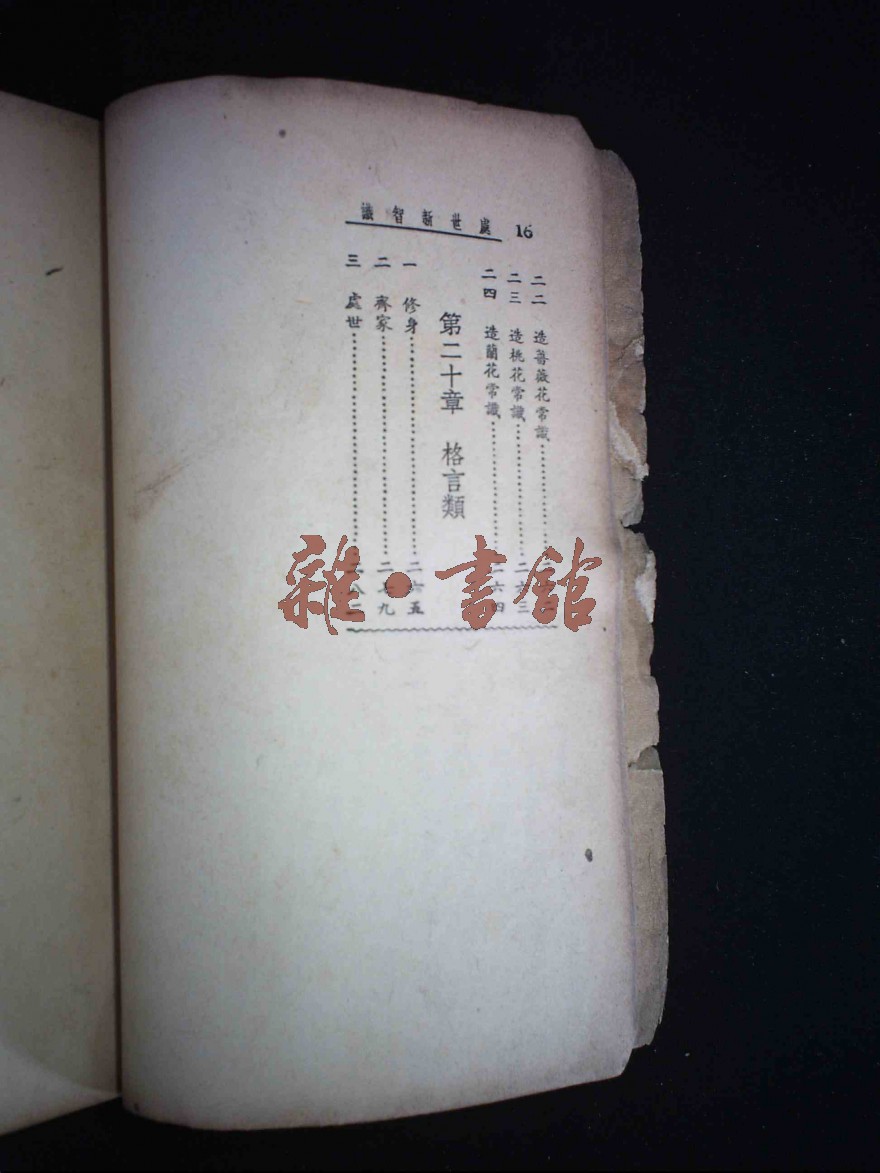 處世新智識 16
二二 造薔薇花常識
二三 造桃花常識……二六三
二四 造蘭花常識……二六四
第二十章 格言類
一 修身……二六五
二 齊家……二七九
三 處世……二八二
雜·書館